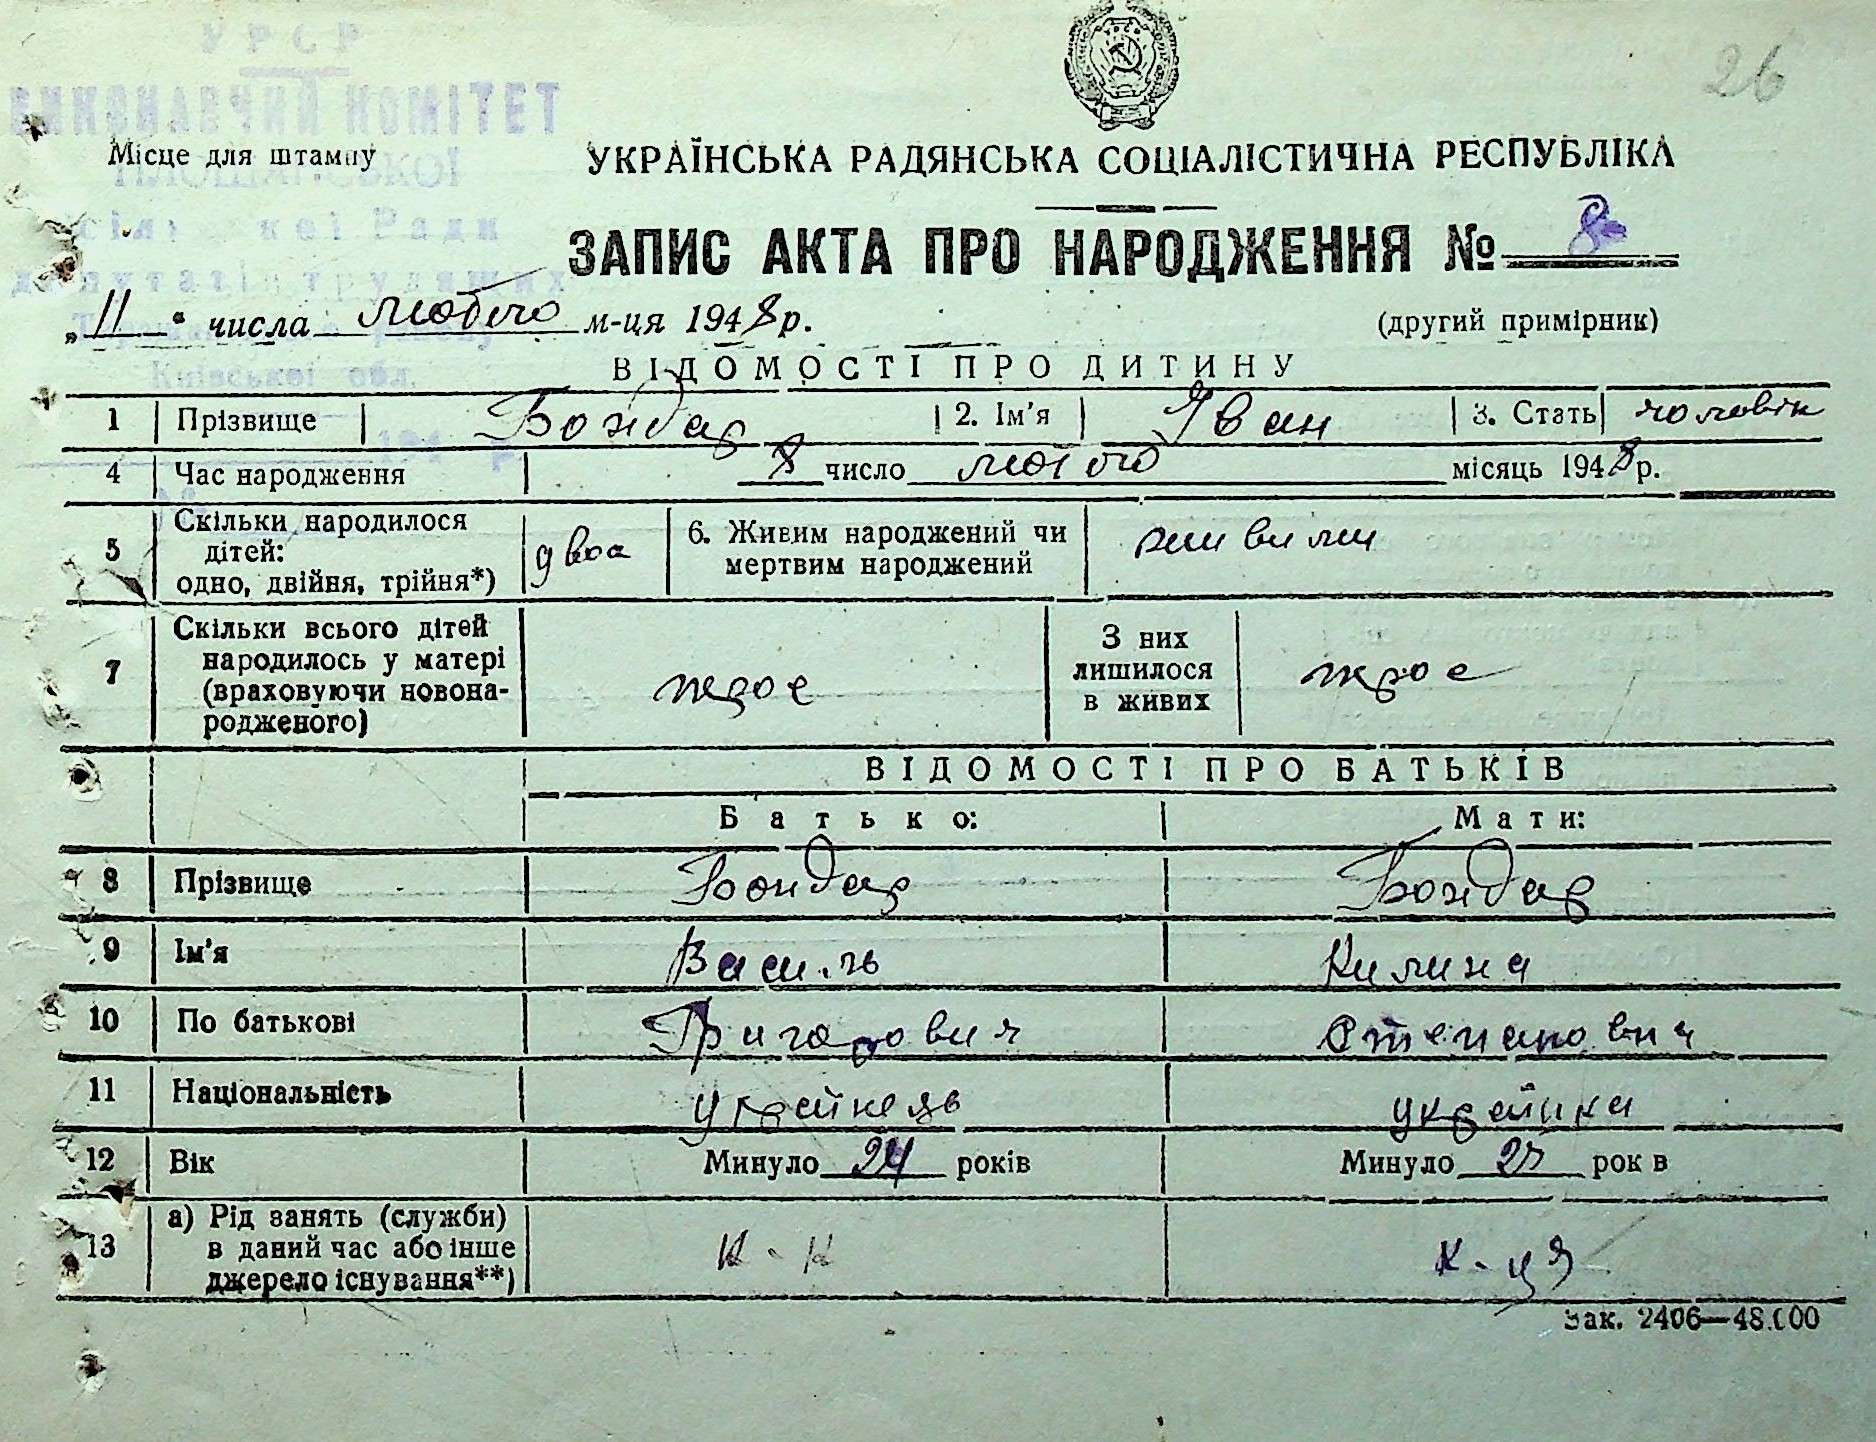 26
УРСР
ВИКОНАВЧИЙ КОМІТЕТ
Місце для штампу
УКРАЇНСЬКА РАДЯНСЬКА СОЦІАЛІСТИЧНА РЕСПУБЛІКА
сільської Ради
депутатів трудящих
ЗАПИС АКТА ПРО НАРОДЖЕННЯ № 8
„11“ числа лютого м-ця 1948 р. (другий примірник)
Київської обл.
ВІДОМОСТІ ПРО ДИТИНУ
1 Прізвище Бондар 2. Ім'я Іван 3. Стать чоловік
4 Час народження 8 число лютого місяць 1948 р.
5 Скільки народилося дітей: одно, двійня, трійня*) двоє 6. Живим народжений чи мертвим народжений живими
7 Скільки всього дітей народилось у матері (враховуючи новонародженого) троє З них лишилося в живих троє
ВІДОМОСТІ ПРО БАТЬКІВ
Батько: Мати:
8 Прізвище Бондар Бондар
9 Ім'я Василь Килина
10 По батькові Григорович Степановна
11 Національність українець українка
12 Вік Минуло 24 років Минуло 27 рок в
13 а) Рід занять (служби) в даний час або інше джерело існування**) к-к к-ця
Зак. 2406—48.000